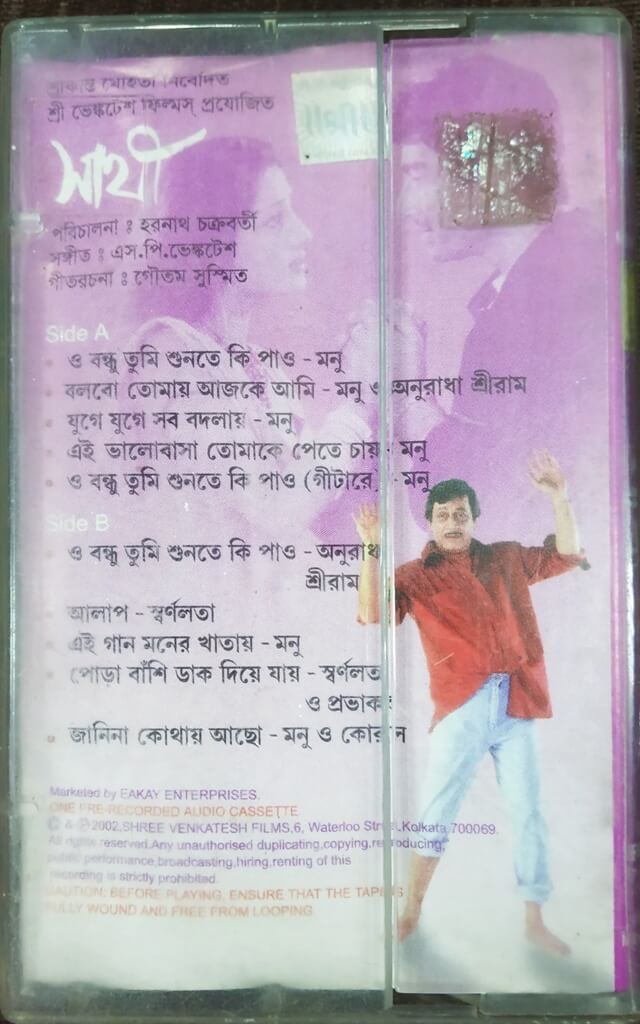 শ্রীকান্ত মোহতা নিবেদিত
শ্রী ভেঙ্কটেশ ফিল্মস্ প্রযোজিত
সাথী
পরিচালনা : হরনাথ চক্রবর্তী
সঙ্গীত : এস.পি.ভেঙ্কটেশ
গীতরচনা : গৌতম সুস্মিত
Side A
ও বন্ধু তুমি শুনতে কি পাও - মনু
বলবো তোমায় আজকে আমি - মনু ও অনুরাধা শ্রীরাম
যুগে যুগে সব বদলায় - মনু
এই ভালোবাসা তোমাকে পেতে চায় - মনু
ও বন্ধু তুমি শুনতে কি পাও (গীটারে) - মনু
Side B
ও বন্ধু তুমি শুনতে কি পাও - অনুরাধা
শ্রীরাম
আলাপ - স্বর্ণলতা
এই গান মনের খাতায় - মনু
পোড়া বাঁশি ডাক দিয়ে যায় - স্বর্ণলতা
ও প্রভাকর
জানিনা কোথায় আছো - মনু ও কোরাস
Marketed by EAKAY ENTERPRISES.
ONE PRE-RECORDED AUDIO CASSETTE
© & ℗ 2002,SHREE VENKATESH FILMS,6, Waterloo Street,Kolkata,700069.
All rights reserved.Any unauthorised duplicating,copying,reproducing,
public performance,broadcasting,hiring,renting of this
recording is strictly prohibited.
CAUTION: BEFORE PLAYING, ENSURE THAT THE TAPE IS
FULLY WOUND AND FREE FROM LOOPING